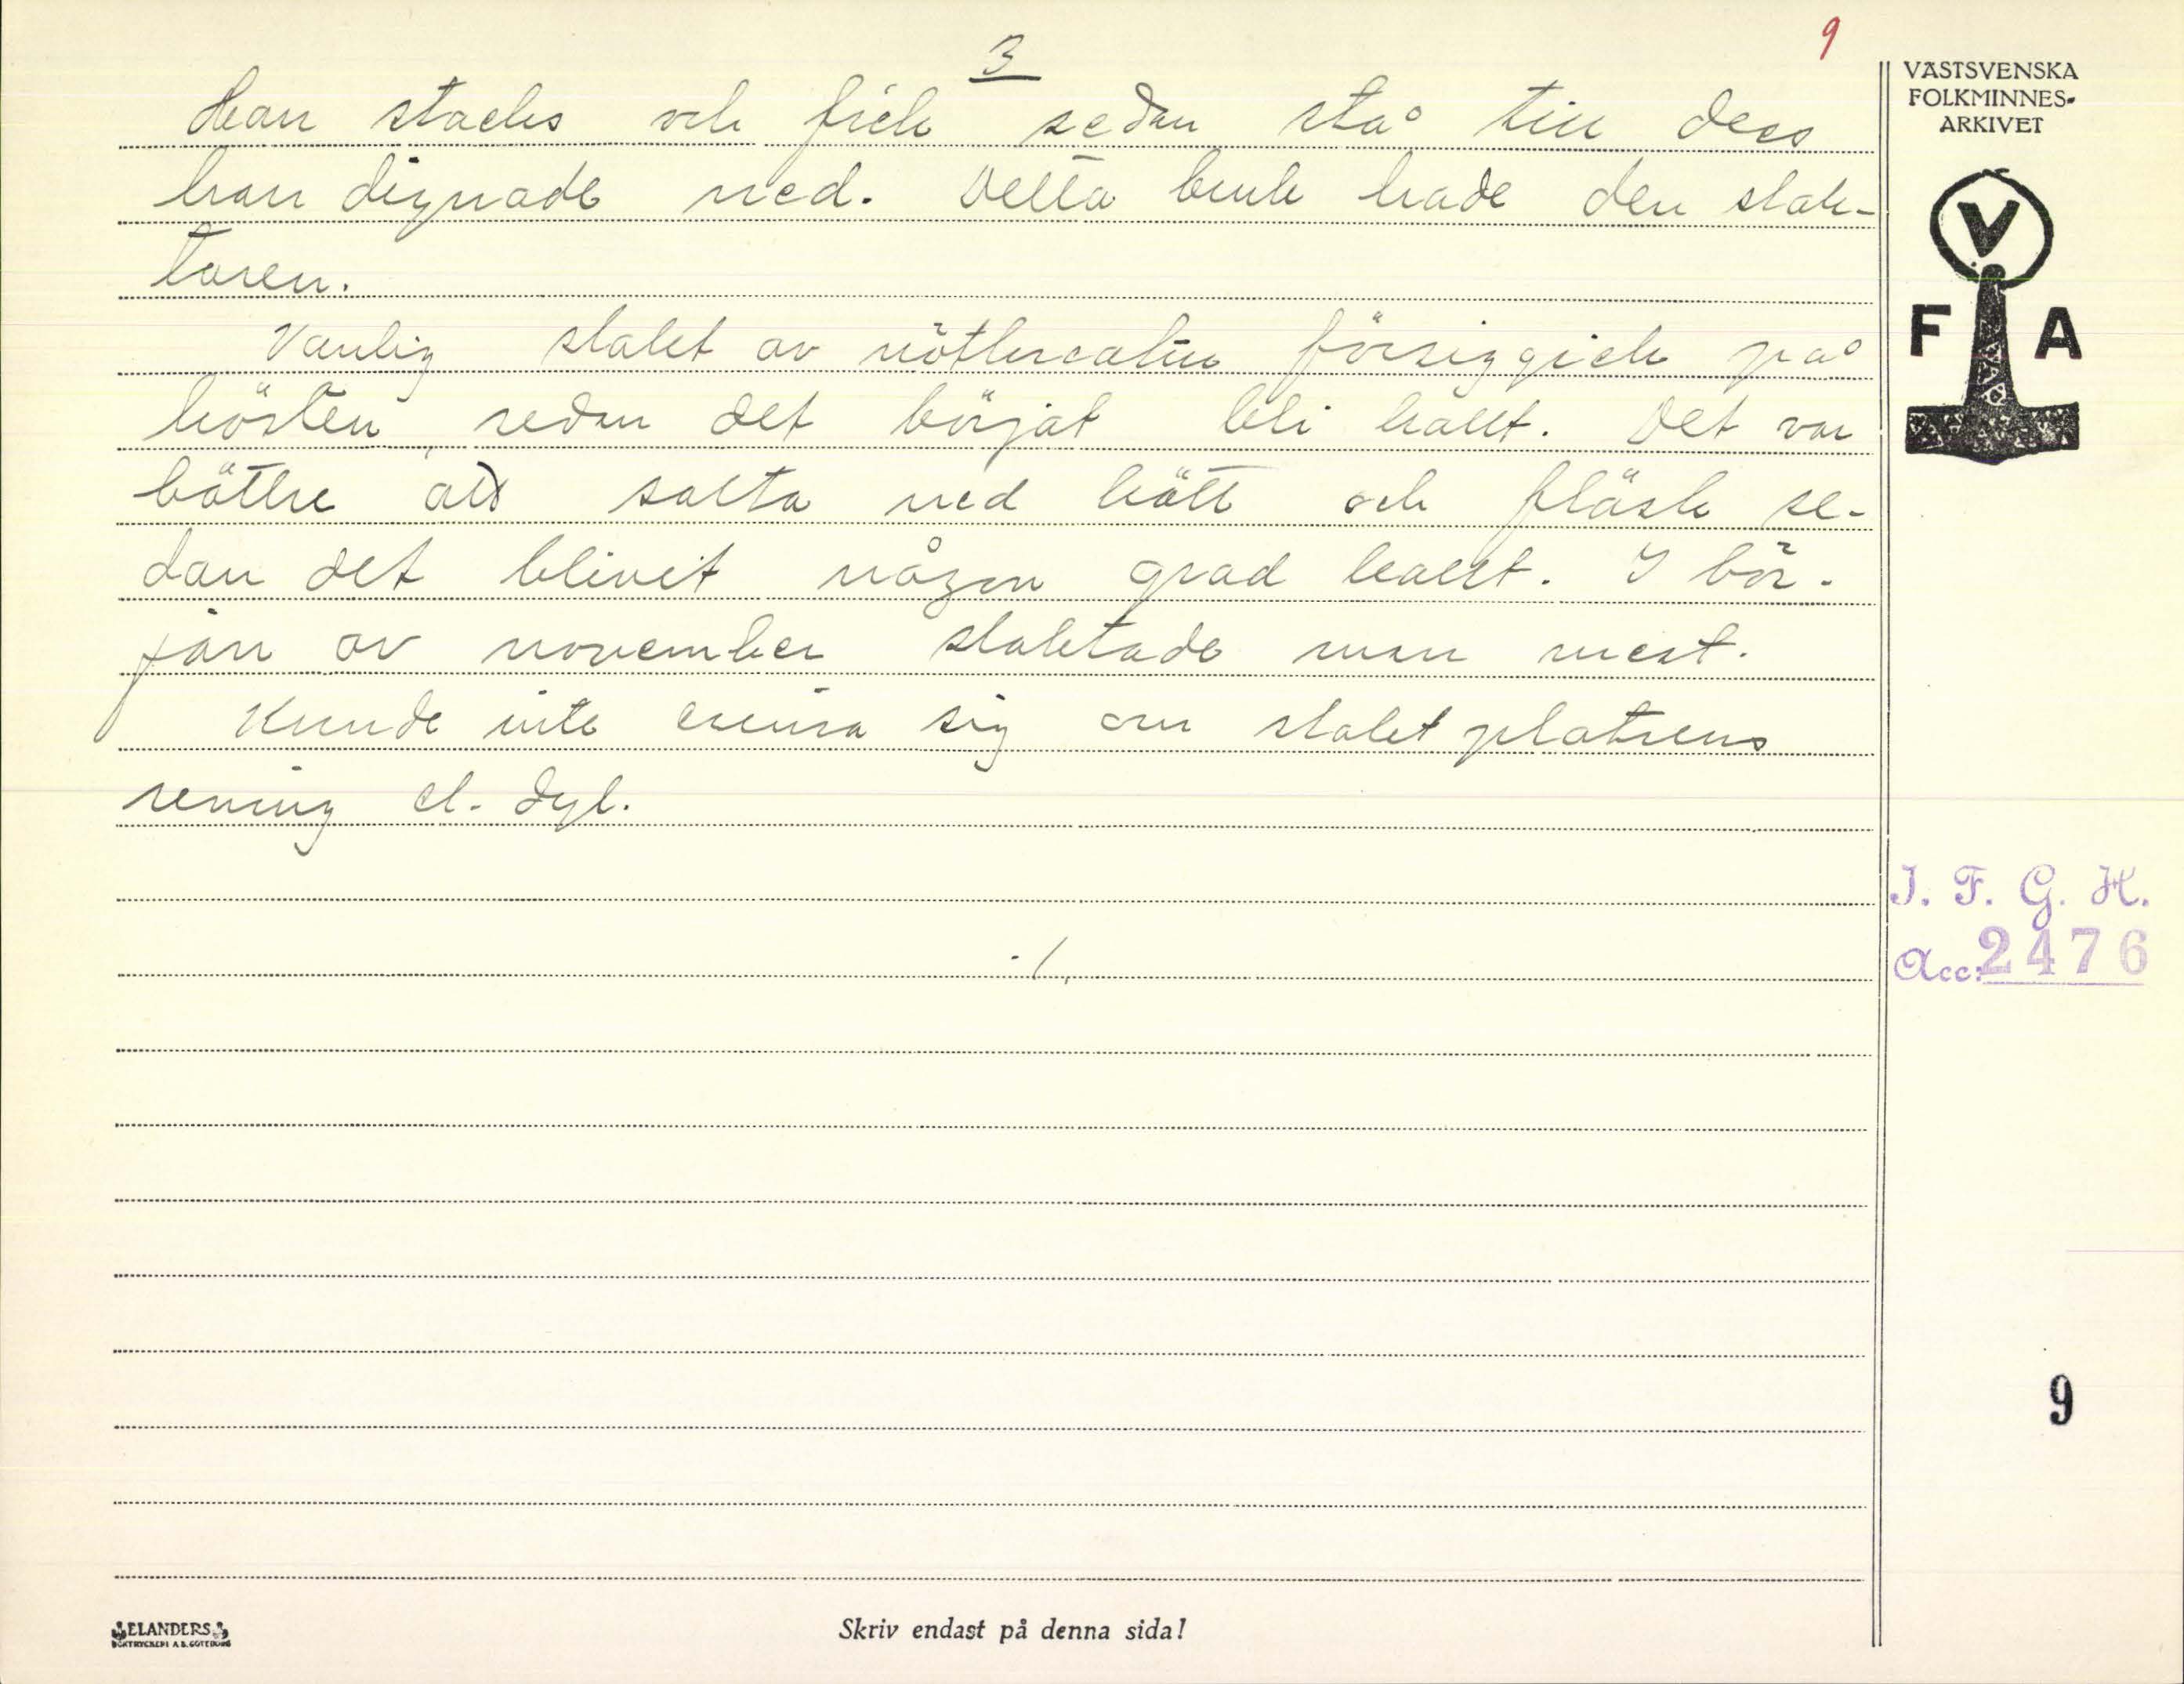 3
9
Han stacks och fick sedan stå till dess
han dignade ned. Detta bruk hade den slak-
taren.
Vanlig slakt av nötkreatur försiggick på
hösten, sedan det börjat bli kallt. Det var
bättre att salta ned kött och fläsk se-
dan det blivit någon grad kallt. I bör-
jan av november slaktade man mest.
Kunde inte erinra sig om slaktplatsens
rening el. dyl.
./.
VÄSTSVENSKA
FOLKMINNES-
ARKIVET
V
F A
I. F. G. H.
Acc: 2476
9
ELANDERS
BOKTRYCKERI A.B. GÖTEBORG
Skriv endast på denna sida!